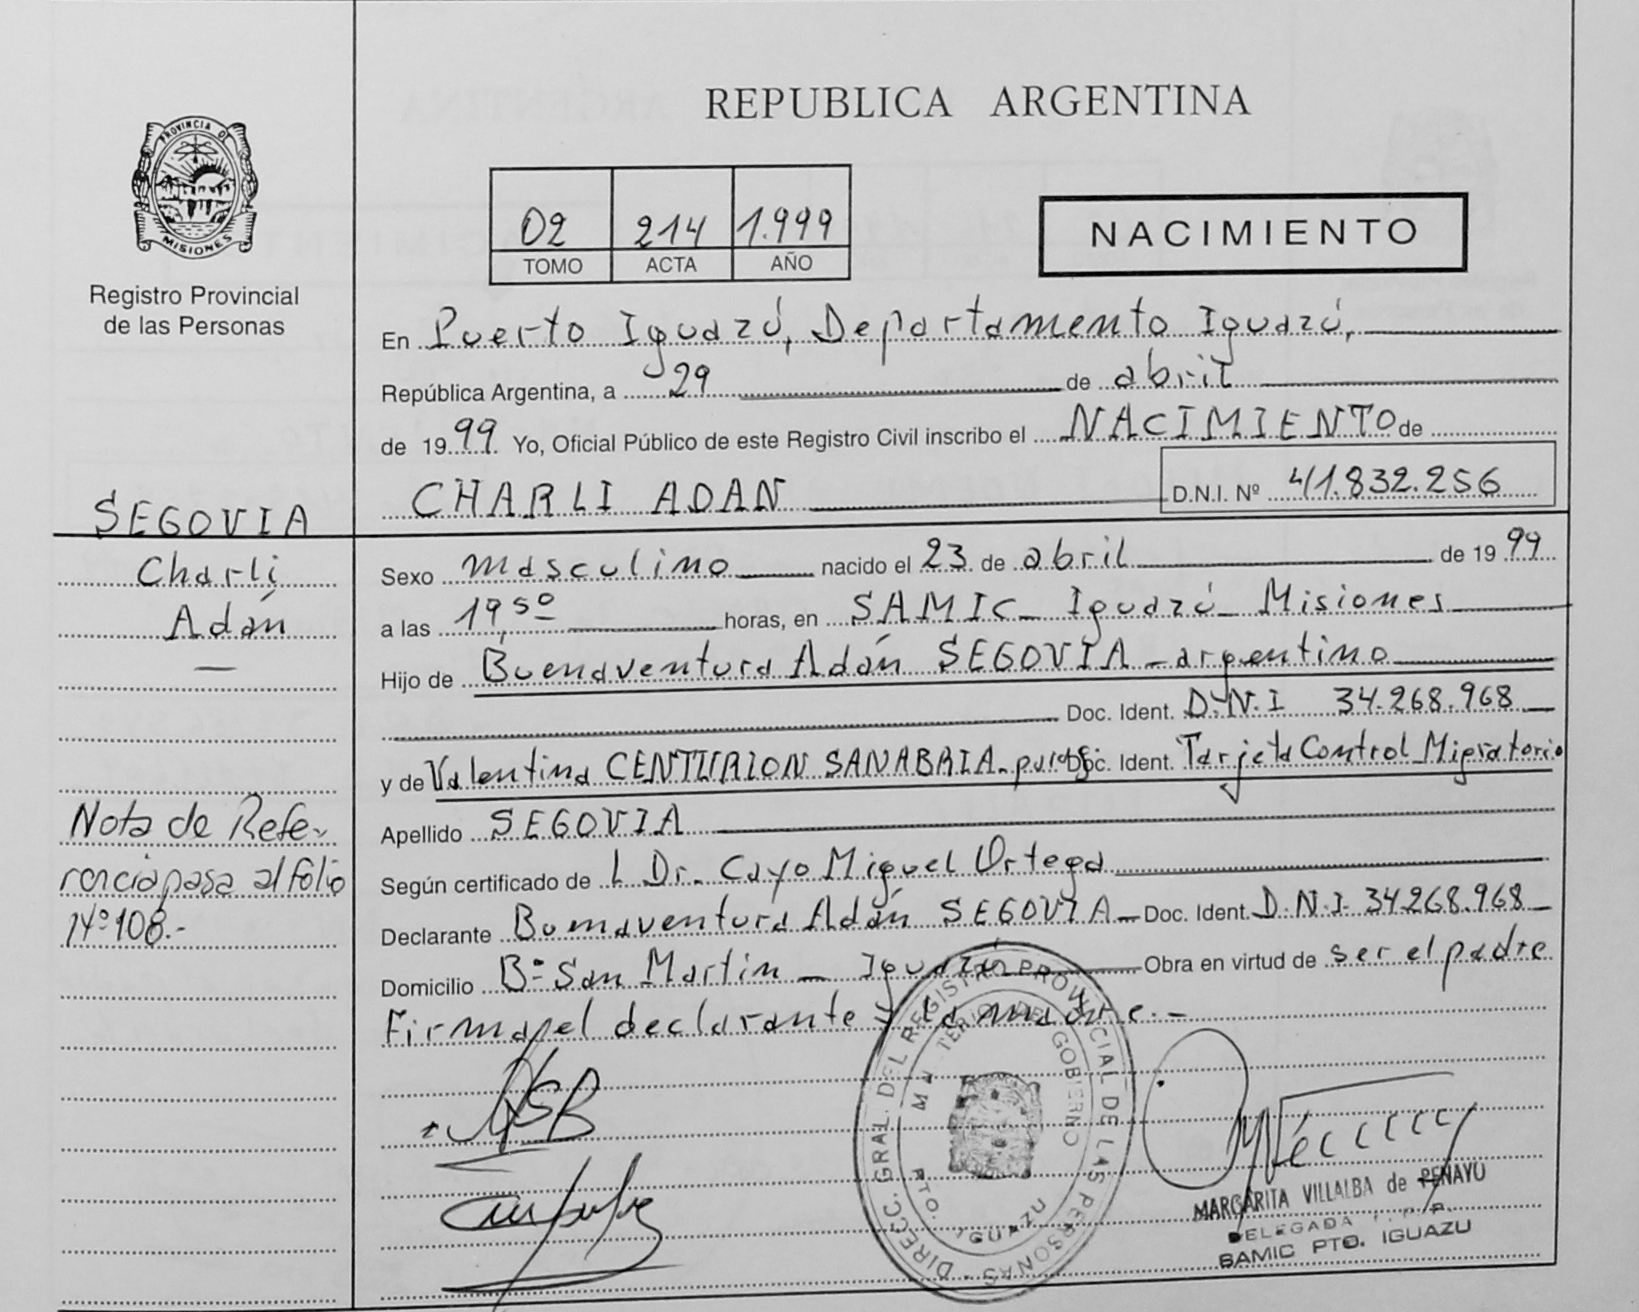 REPUBLICA ARGENTINA
PROVINCIA DE
MISIONES
Registro Provincial
de las Personas
02 214 1.999
TOMO ACTA AÑO
NACIMIENTO
En Puerto Iguazú, Departamento Iguazú,
República Argentina, a 29 de abril
de 1999 Yo, Oficial Público de este Registro Civil inscribo el NACIMIENTO de
CHARLI ADAN D.N.I. Nº 41.832.256
SEGOVIA
Charli
Adán
Sexo masculino nacido el 23 de abril de 1999
a las 19,50 horas, en SAMIC_ Iguazú_ Misiones
Hijo de Buenaventura Adán SEGOVIA - argentino
Doc. Ident. D.N.I 34.268.968
y de Valentina CENTURION SANABRIA - Doc. Ident. Tarjeta Control Migratorio
Apellido SEGOVIA
Según certificado de l Dr. Cayo Miguel Ortega
Declarante Buenaventura Adán SEGOVIA - Doc. Ident. D.N.I. 34268.968
Domicilio Bº San Martín - Iguazú Obra en virtud de ser el padre
Firman el declarante y la madre.-
Nota de Refe-
rencia pasa al folio
Nº 108.-
DIRECC. GRAL. DEL REGISTRO PROVINCIAL DE LAS PERSONAS
MINISTERIO DE GOBIERNO
PTO. IGUAZU
MARGARITA VILLALBA de PENAYO
DELEGADA
SAMIC PTO. IGUAZU